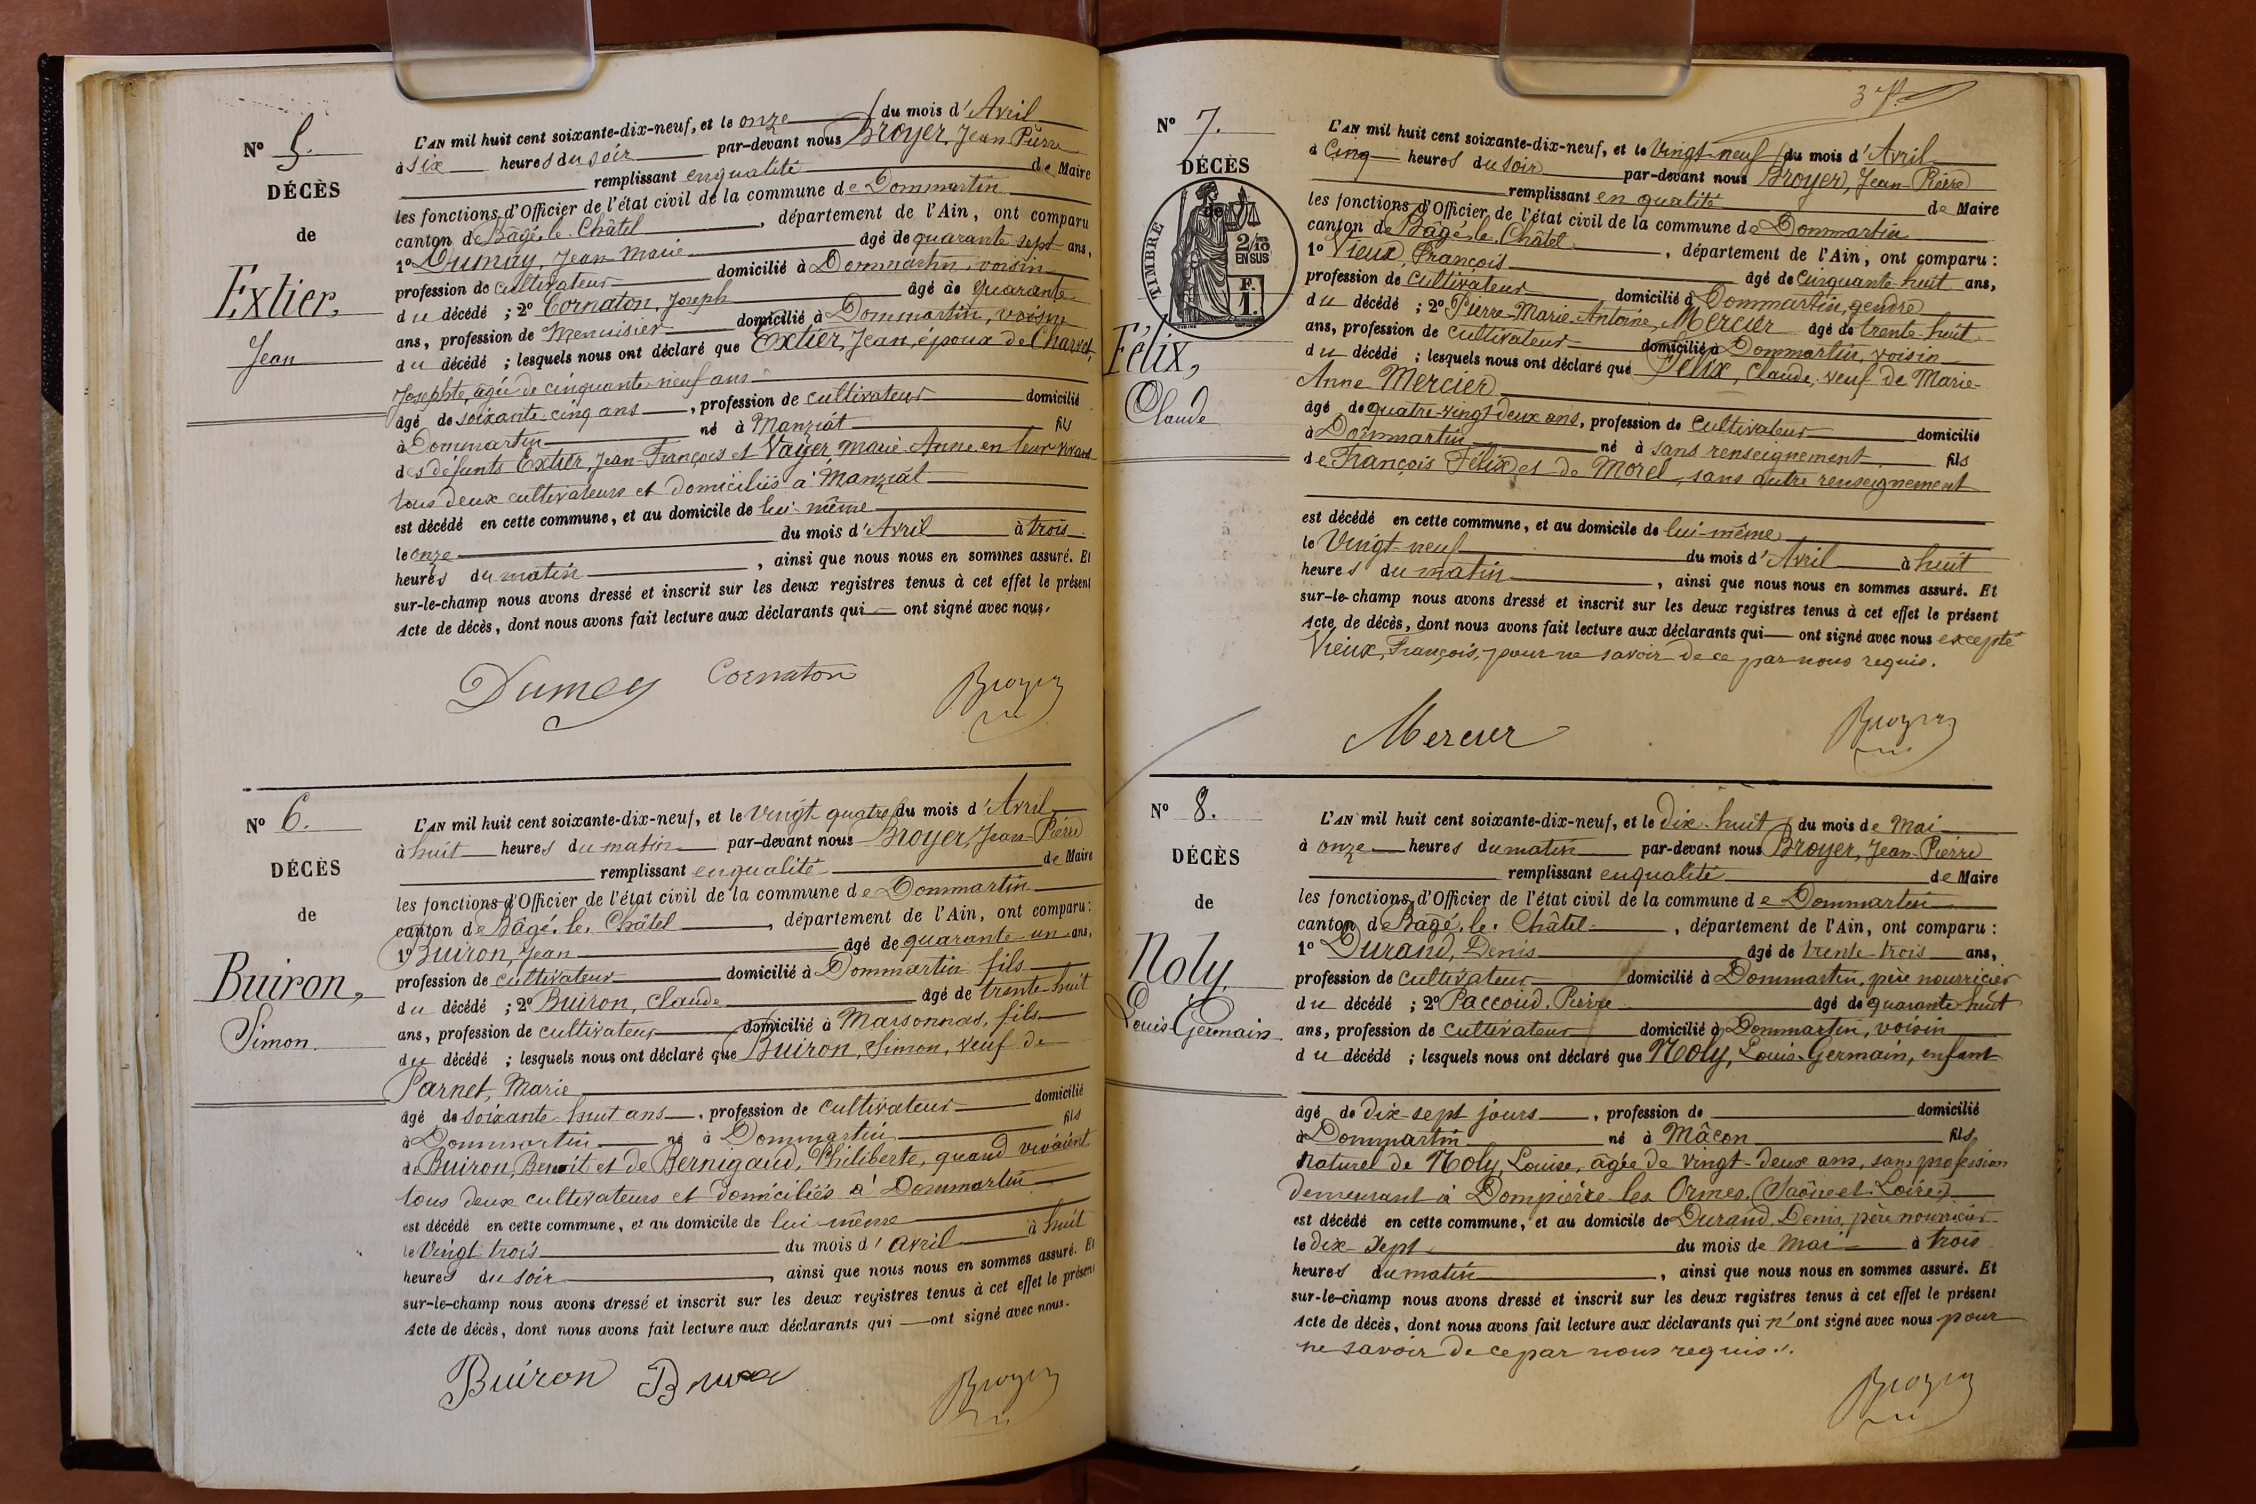 N° 5.
DÉCÈS
de
Extier,
Jean
L'AN mil huit cent soixante-dix-neuf, et le onze du mois d'Avril
à six heures du soir par-devant nous Broyer, Jean Pierre
remplissant en qualité de Maire
les fonctions d'Officier de l'état civil de la commune de Dommartin
canton de Bâgé-le-Châtel, département de l'Ain, ont comparu
1° Dumay, Jean Marie âgé de quarante sept ans,
profession de cultivateur domicilié à Dommartin, voisin
du décédé ; 2° Cornaton, Joseph âgé de quarante
ans, profession de Menuisier domicilié à Dommartin, voisin
du décédé ; lesquels nous ont déclaré que Extier, Jean, époux de Charvet,
Josephte, âgée de cinquante-neuf ans
âgé de soixante-cinq ans, profession de cultivateur domicilié
à Dommartin né à Manziat fils
des défunts Extier, Jean-François et Vayer, Marie-Anne, en leur vivant
tous deux cultivateurs et domiciliés à Manziat
est décédé en cette commune, et au domicile de lui-même
le onze du mois d'Avril à trois
heures du matin, ainsi que nous nous en sommes assuré. Et
sur-le-champ nous avons dressé et inscrit sur les deux registres tenus à cet effet le présent
Acte de décès, dont nous avons fait lecture aux déclarants qui ont signé avec nous.
Dumay Cornaton Broyer
N° 6.
DÉCÈS
de
Buiron,
Simon
L'AN mil huit cent soixante-dix-neuf, et le Vingt quatre du mois d'Avril
à huit heures du matin par-devant nous Broyer, Jean-Pierre
remplissant en qualité de Maire
les fonctions d'Officier de l'état civil de la commune de Dommartin
canton de Bâgé-le-Châtel, département de l'Ain, ont comparu :
1° Buiron, Jean âgé de quarante-un ans,
profession de cultivateur domicilié à Dommartin fils
du décédé ; 2° Buiron, Claude âgé de trente-huit
ans, profession de cultivateur domicilié à Marsonnas, fils
du décédé ; lesquels nous ont déclaré que Buiron, Simon, veuf de
Parnet, Marie
âgé de soixante-huit ans, profession de cultivateur domicilié
à Dommartin né à Dommartin fils
de Buiron, Benoît et de Bernigaud, Philiberte, quand vivaient
tous deux cultivateurs et domiciliés à Dommartin
est décédé en cette commune, et au domicile de lui-même
le Vingt-trois du mois d'avril à huit
heures du soir, ainsi que nous nous en sommes assuré. Et
sur-le-champ nous avons dressé et inscrit sur les deux registres tenus à cet effet le présent
Acte de décès, dont nous avons fait lecture aux déclarants qui ont signé avec nous.
Buiron Broyer
N° 7.
DÉCÈS
de
TIMBRE
2/10
EN SUS
F.
1.
Félix,
Claude
L'AN mil huit cent soixante-dix-neuf, et le Vingt-neuf du mois d'Avril
à Cinq heures du soir par-devant nous Broyer, Jean-Pierre
remplissant en qualité de Maire
les fonctions d'Officier de l'état civil de la commune de Dommartin
canton de Bâgé-le-Châtel, département de l'Ain, ont comparu :
1° Vieux, François âgé de Cinquante-huit ans,
profession de Cultivateur domicilié à Dommartin, gendre
du décédé ; 2° Pierre-Marie-Antoine Mercier âgé de trente-huit
ans, profession de cultivateur domicilié à Dommartin, voisin
du décédé ; lesquels nous ont déclaré que Félix, Claude, veuf de Marie-
Anne Mercier
âgé de quatre-vingt-deux ans, profession de Cultivateur domicilié
à Dommartin né à sans renseignement fils
de François Félix et de Morel, sans autre renseignement
est décédé en cette commune, et au domicile de lui-même
le Vingt-neuf du mois d'Avril à huit
heures du matin, ainsi que nous nous en sommes assuré. Et
sur-le-champ nous avons dressé et inscrit sur les deux registres tenus à cet effet le présent
Acte de décès, dont nous avons fait lecture aux déclarants qui ont signé avec nous excepté
Vieux, François, pour ne savoir de ce par nous requis.
Mercier Broyer
N° 8.
DÉCÈS
de
Noly,
Louis-Germain
L'AN mil huit cent soixante-dix-neuf, et le dix-huit du mois de Mai
à onze heures du matin par-devant nous Broyer, Jean-Pierre
remplissant en qualité de Maire
les fonctions d'Officier de l'état civil de la commune de Dommartin
canton de Bâgé-le-Châtel, département de l'Ain, ont comparu :
1° Durand, Denis âgé de trente-trois ans,
profession de cultivateur domicilié à Dommartin, père nourricier
du décédé ; 2° Paccoud, Pierre âgé de quarante-huit
ans, profession de cultivateur domicilié à Dommartin, voisin
du décédé ; lesquels nous ont déclaré que Noly, Louis-Germain, enfant
âgé de dix-sept jours, profession de domicilié
à Dommartin né à Mâcon fils
naturel de Noly, Louise, âgée de vingt-deux ans, sans profession
demeurant à Dompierre-les-Ormes (Saône-et-Loire)
est décédé en cette commune, et au domicile de Durand, Denis, père nourricier
le dix-sept du mois de Mai à trois
heures du matin, ainsi que nous nous en sommes assuré. Et
sur-le-champ nous avons dressé et inscrit sur les deux registres tenus à cet effet le présent
Acte de décès, dont nous avons fait lecture aux déclarants qui n'ont signé avec nous pour
ne savoir de ce par nous requis.
Broyer